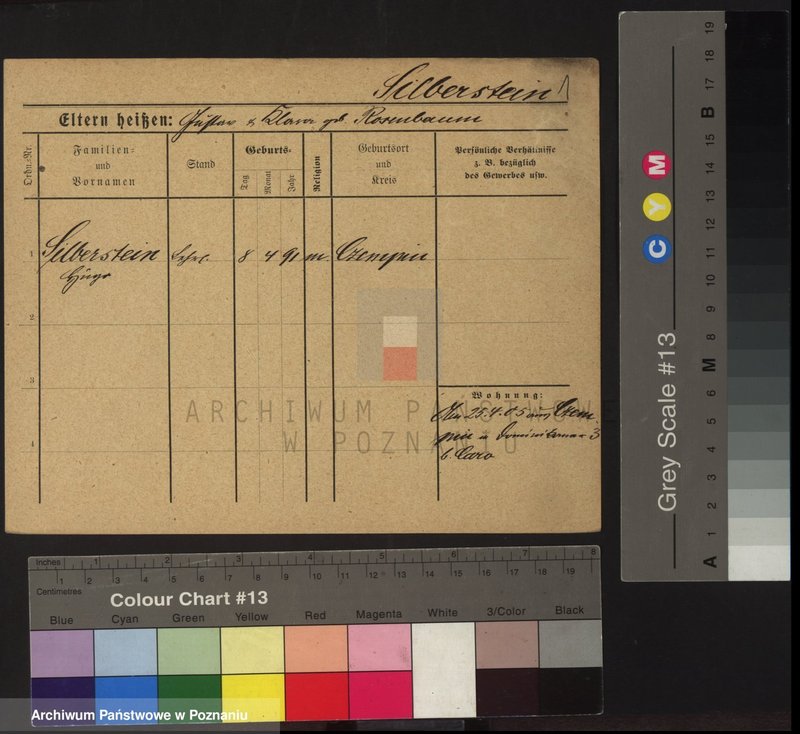 Silberstein
Eltern heißen: Gustav & Klara geb. Rosenbaum
Ordn.-Nr.
Familien-
und
Vornamen
Stand
Geburts-
Tag
Monat
Jahr
Religion
Geburtsort
und
Kreis
Persönliche Verhältnisse
z. B. bezüglich
des Gewerbes usw.
1 Silberstein Lehrl. 8 4 91 m. Czempin
Hugo
2
3
4
Wohnung:
25.4.05 aus Czem-
pin n. Dominikaner 3
b. Caro
ARCHIWUM PAŃSTWOWE
W POZNANIU
Inches 1 2 3 4 5 6 7 8
Centimetres 1 2 3 4 5 6 7 8 9 10 11 12 13 14 15 16 17 18 19
Colour Chart #13
Blue Cyan Green Yellow Red Magenta White 3/Color Black
Archiwum Państwowe w Poznaniu
Grey Scale #13
C Y M
A 1 2 3 4 5 6 M 8 9 10 11 12 13 14 15 B 17 18 19